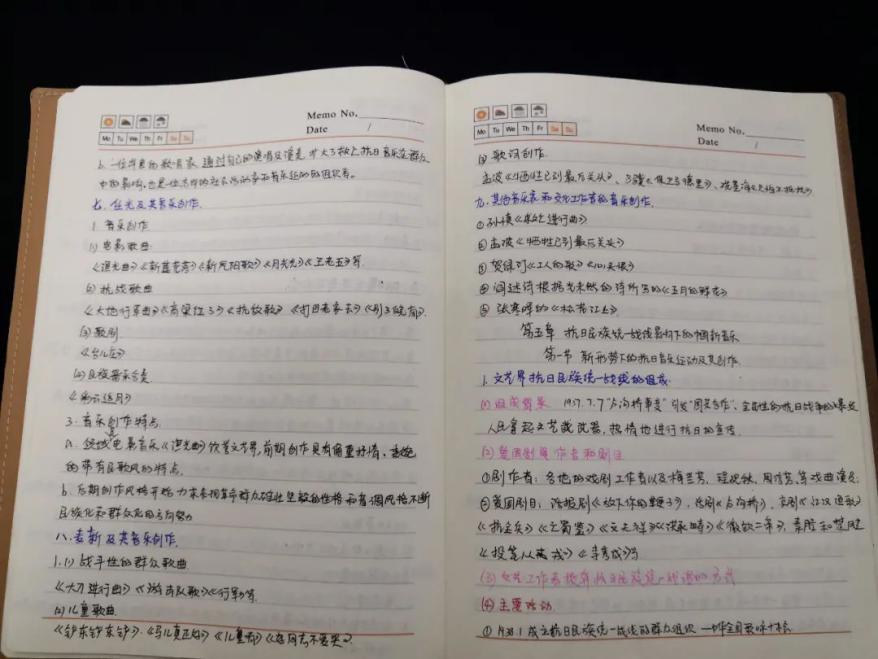 Memo No.
Mo Tu We Th Fr Sa Su
Date /
b. 一位出色的歌唱家,通过自己的演唱及演走,扩大了救亡抗日音乐在群众
中的影响,也是一位
七. 任光及其音乐创作.
1. 音乐创作
(1) 电影歌曲
《渔光曲》《新莲花落》《新凤阳歌》《月光光》《王老五》等.
(2) 抗战歌曲
《大地行军曲》《高粱红了》《抗敌歌》《打回老家去》
(3) 歌剧
《台儿庄》
(4) 民族器乐合奏
《彩云追月》
3. 音乐创作特点.
a. 电影音乐《渔光曲》饮誉文艺界,前期创作具有
的带有民歌风的特点.
b. 后期创作风格开始力求表现革命群众性坚毅的性格和
民族化和群众化的方向努力
八. 麦新及其音乐创作.
1. (1) 战斗性的群众歌曲
《大刀进行曲》《游击队歌》《行军》等.
(2) 儿童歌曲
《铲东铲东铲》.《马儿真正好》《儿童哨》
Memo No.
Mo Tu We Th Fr Sa Su
Date /
歌词创作.
孟波《牺牲已到最后关头》、
九. 其他音乐家和文化工作者的音乐创作.
① 孙慎《救亡进行曲》
② 孟波《牺牲已到最后关头》
③ 贺绿汀《工人的歌》《心头恨》
④ 阎述诗根据光未然的诗所写的《五月的鲜花》
⑤ 张寒晖的《松花江上》.
第五章 抗日民族统一战线影响下的中国新音乐
第一节 新形势下的抗日音乐运动及其创作.
1. 文艺界抗日民族统一战线的组成.
(1) 组成背景. 1937.7.7"卢沟桥事变"引发"国共合作",全面性的抗日战争的爆发
人民拿起文艺武器,热情地进行抗日的宣传.
(2) 爱国剧目作者和剧目
① 剧作者:各地的戏剧工作者以及梅兰芳、程砚秋、周信芳等戏曲演员.
② 爱国剧目:活报剧《放下你的鞭子》,话剧《卢沟桥》,京剧《江汉渔歌》
《抗金兵》《文天祥》《徽钦二帝》,秦腔和楚剧
《投笔从戎》
(3) 文艺工作者投奔抗日民族统一战线的方式
(4) 主要活动
① 1938.1 成立抗日民族统一战线的群众组织——中华全国歌咏协会.